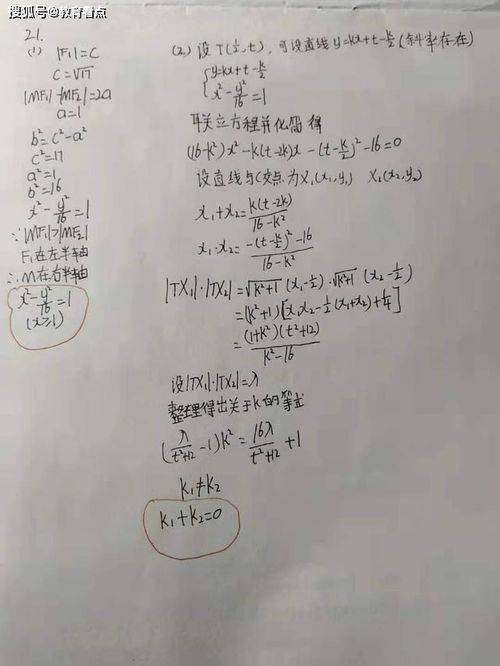 搜狐号@教育看点
21.
(1) |F₁|=C
C=√17
|MF₁|-|MF₂|=2a
a=1
b²=c²-a²
c²=17
a²=1
b²=16
x²-y²/16=1
∵|MF₁|>|MF₂|
F₁在左半轴
∴M在右半轴
x²-y²/16=1
(x≥1)
(2) 设T(½,t), 可设直线y=kx+t-k/2(斜率存在)
{y=kx+t-k/2
{x²-y²/16=1
联立方程并化简得
(16-k²)x²-k(t-2k)x-(t-k/2)²-16=0
设直线与C交点为X₁(x₁,y₁) X₂(x₂,y₂)
x₁+x₂=k(t-2k)/16-k²
x₁·x₂=-(t-k/2)²-16/16-k²
|TX₁|·|TX₂|=√k²+1(x₁-½)·√k²+1(x₂-½)
=(k²+1)[x₁x₂-½(x₁+x₂)+¼]
=(1+k²)(t²+12)/k²-16
设|TX₁|·|TX₂|=λ
整理得出关于k的等式
(λ/t²+12-1)k²=16λ/t²+12+1
k₁≠k₂
k₁+k₂=0